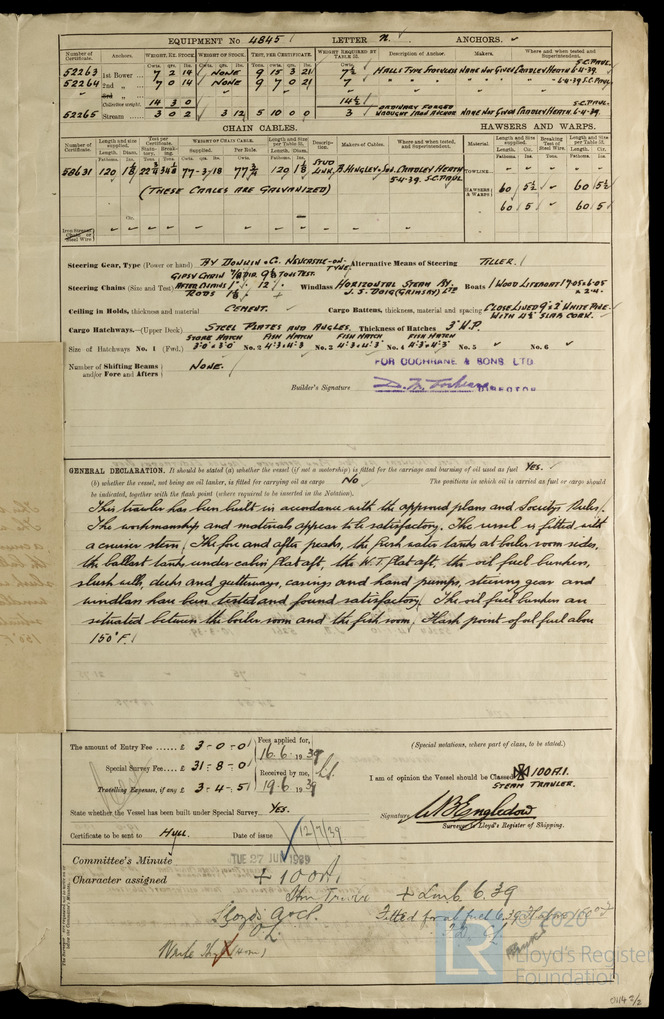 EQUIPMENT No 4845 LETTER n. ANCHORS.
Number of Certificate. Anchors. WEIGHT, EX. STOCK. WEIGHT OF STOCK. TEST, PER CERTIFICATE. WEIGHT REQUIRED BY TABLE 53. Description of Anchor. Makers. Where and when tested and Superintendent.
Cwts. qrs. lbs. Cwts. qrs. lbs. Tons. cwts. qrs. lbs. Cwts. S.C. PAUL.
52263 1st Bower 7 2 14 NONE 9 15 3 21 7½ HALLS TYPE STOCKLESS NAME NOT GIVEN CRADLEY HEATH 6-4-39.
52264 2nd " 7 0 14 NONE 9 7 0 21 7 " " " " " " - 6-4-39 S.C. PAUL.
3rd "
Collective weight 14 3 0 14½ S.C. PAUL.
ORDINARY FORGED
52265 Stream 3 0 2 3 12 5 10 0 0 3 WROUGHT IRON ANCHOR NAME NOT GIVEN CRADLEY HEATH 6-4-39.
CHAIN CABLES. HAWSERS AND WARPS.
Number of Certificate. Length and size supplied. Test per Certificate. WEIGHT OF CHAIN CABLE. Length and Size per Table 53. Description. Makers of Cables. Where and when tested, and Superintendent. Material. Length and size supplied. Breaking Test of Steel Wire. Length and Size per Table 53.
Length. Diam. Supplied. Per Rule. Length. Diam. Length. Cir. Length. Cir.
Fathoms. Ins. Tons Tons Cwts. qrs. lbs. Cwts. Fathoms. Ins. Fathoms. Ins. Tons. Fathoms. Ins.
58631 120 77-3-18 77¾ 120 STUD LINK B. HINGLEY & SONS. CRADLEY HEATH TOWLINE
5-4-39 S.C. PAUL
(THESE CABLES ARE GALVANIZED) HAWSERS & WARPS 60 5½ 60 5½
60 5 60 5
Steering Gear, Type (Power or hand) BY DONKIN & CO. NEWCASTLE-ON-TYNE. Alternative Means of Steering TILLER.
GIPSY CHAIN DIA. TONS TEST.
Steering Chains (Size and Test) AFTER CHAINS 1" 12 Windlass HORIZONTAL STEAM BY Boats 1 WOOD LIFEBOAT 17.05 x 6.05
RODS J. S. DOIG (GRIMSBY) LTD x 2.4.
Ceiling in Holds, thickness and material CEMENT. Cargo Battens, thickness, material and spacing CLOSE LINED 9 x 2" WHITE PINE.
WITH 4½" SLAB CORK.
Cargo Hatchways.—(Upper Deck) STEEL PLATES AND ANGLES. Thickness of Hatches 3" W.P.
STORE HATCH FISH HATCH FISH HATCH FISH HATCH
Size of Hatchways No. 1 (Fwd.) 3'0" x 3'0" No. 2 4'.3 x 4'.3 No. 3 4'.3 x 4'.3 No. 4 4'.3 x 4'.3 No. 5 No. 6
Number of Shifting Beams NONE.
and/or Fore and Afters
FOR COCHRANE & SONS LTD
Builder's Signature D. M. Cochrane DIRECTOR
GENERAL DECLARATION. It should be stated (a) whether the vessel (if not a motorship) is fitted for the carriage and burning of oil used as fuel YES.
(b) whether the vessel, not being an oil tanker, is fitted for carrying oil as cargo NO The positions in which oil is carried as fuel or cargo should
be indicated, together with the flash point (where required to be inserted in the Notation).
This trawler has been built in accordance with the approved plans and Society's Rules.
The workmanship and materials appear to be satisfactory. The vessel is fitted with
a cruiser stern. The fore and after peaks, the fresh water tanks at boiler room sides,
the ballast tanks under cabin flat aft, the W.T. flat aft, the oil fuel bunkers,
slush wells, decks and gutterways, casings and hand pumps, steering gear and
windlass have been tested and found satisfactory. The oil fuel bunkers are
situated between the boiler room and the fish room. Flash point of oil fuel above
150°F.
The amount of Entry Fee £ 3-0-0 Fees applied for, (Special notations, where part of class, to be stated.)
16.6.1939
Special Survey Fee £ 31-8-0 Received by me, I am of opinion the Vessel should be Classed ✠ 100A1.
Travelling Expenses, if any £ 3-4-5 19.6.1939 STEAM TRAWLER.
State whether the Vessel has been built under Special Survey YES. Signature W B Engledow
Surveyor to Lloyd's Register of Shipping.
Certificate to be sent to HULL Date of issue 12/7/39
Committee's Minute TUE 27 JUN 1939
Character assigned + 100A1
+ Lmb 6.39
Lloyds A&CP. Fitted for oil fuel 6.39
O.L.
Write
© 2020
LR
Lloyd's Register
Foundation
0114 2/2